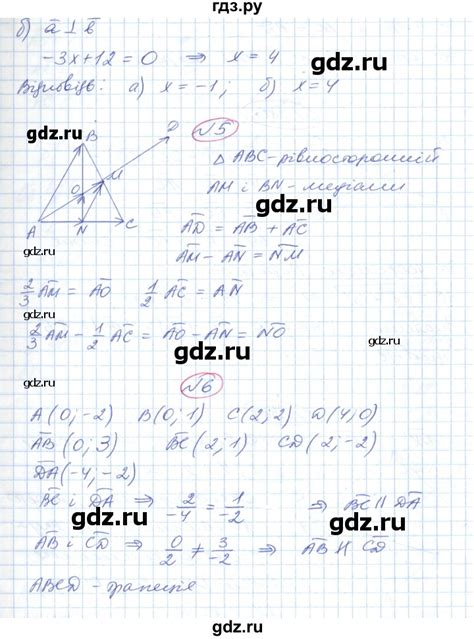 гдз.ру
б) a̅ ⊥ b̅
-3x+12=0 ⇒ x=4
Відповідь: а) x=-1; б) x=4
gdz.ru
gdz.ru
№5
B
D
M
O
A
N
C
Δ ABC - рівносторонній
AM і BN - медіани
gdz.ru
gdz.ru
A̅D̅ = A̅B̅ + A̅C̅
gdz.ru
A̅M̅ - A̅N̅ = N̅M̅
2/3 A̅M̅ = A̅O̅ 1/2 A̅C̅ = A̅N̅
gdz.ru
2/3 A̅M̅ - 1/2 A̅C̅ = A̅O̅ - A̅N̅ = N̅O̅
gdz.ru
gdz.ru
№6
A(0;-2) B(0;1) C(2;2) D(4;0)
gdz.ru
gdz.ru
A̅B̅(0;3) B̅C̅(2;1) C̅D̅(2;-2)
D̅A̅(-4;-2)
gdz.ru
B̅C̅ і D̅A̅ ⇒ 2/-4 = 1/-2 ⇒ B̅C̅ || D̅A̅
gdz.ru
gdz.ru
A̅B̅ і C̅D̅ ⇒ 0/2 ≠ 3/-2 ⇒ A̅B̅ ∦ C̅D̅
ABCD - трапеція
gdz.ru